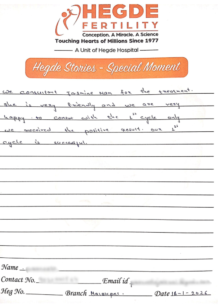 HEGDE
FERTILITY
Conception. A Miracle. A Science
Touching Hearts of Millions Since 1977
A Unit of Hegde Hospital
Hegde Stories - Special Moment
We consultant Jasmine mam for the treatment.
She is very friendly and we are very
happy to consu with the 1st cycle only
we received the positive result. our 1st
cycle is successful.
Name
Contact No. Email id
Heg No. Branch Date 18-1-2026